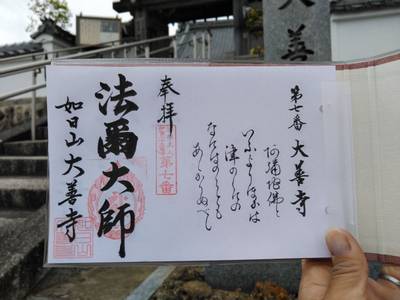 大善
第七番 大善寺
阿彌陀佛と
いふよりほかは
津の国の
なにはのことも
あしかりぬべし
奉拝
第七番
法爾大師
如日山 大善寺